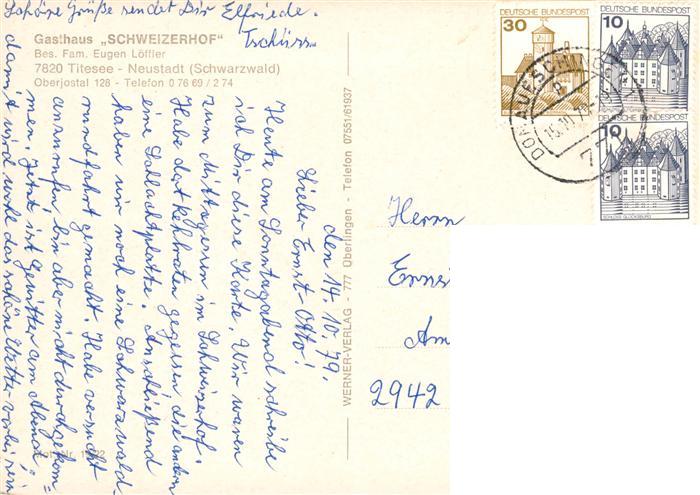 Gasthaus „SCHWEIZERHOF"
Bes. Fam. Eugen Löffler
7820 Titesee - Neustadt (Schwarzwald)
Oberjostal 128 - Telefon 0 76 69 / 2 74
den 14. 10. 79.
Lieber Ernst-Otto!
Heute am Sonntagabend schreibe
ich Dir diese Karte. Wir waren
zum Mittagessen im Schweizerhof.
Habe da Rehbraten gegessen die andern
eine Schlachtplatte. Anschließend
haben wir noch eine Schwarzwald-
rundfahrt gemacht. Habe versucht
anzurufen bin aber nicht durchgekom=
men. Jetzt ist Gewitter am Abend,
damit wird wohl das schöne Wetter vorbei sein.
Schöne Grüße sendet Dir Elfriede.
Tschüss
WERNER-VERLAG - 777 Überlingen - Telefon 07551/61937
30
DEUTSCHE BUNDESPOST
10
DEUTSCHE BUNDESPOST
10
DEUTSCHE BUNDESPOST
SCHLOSS GLÜCKSBURG
DONAUESCHING
Herrn
Erns
Am
2942